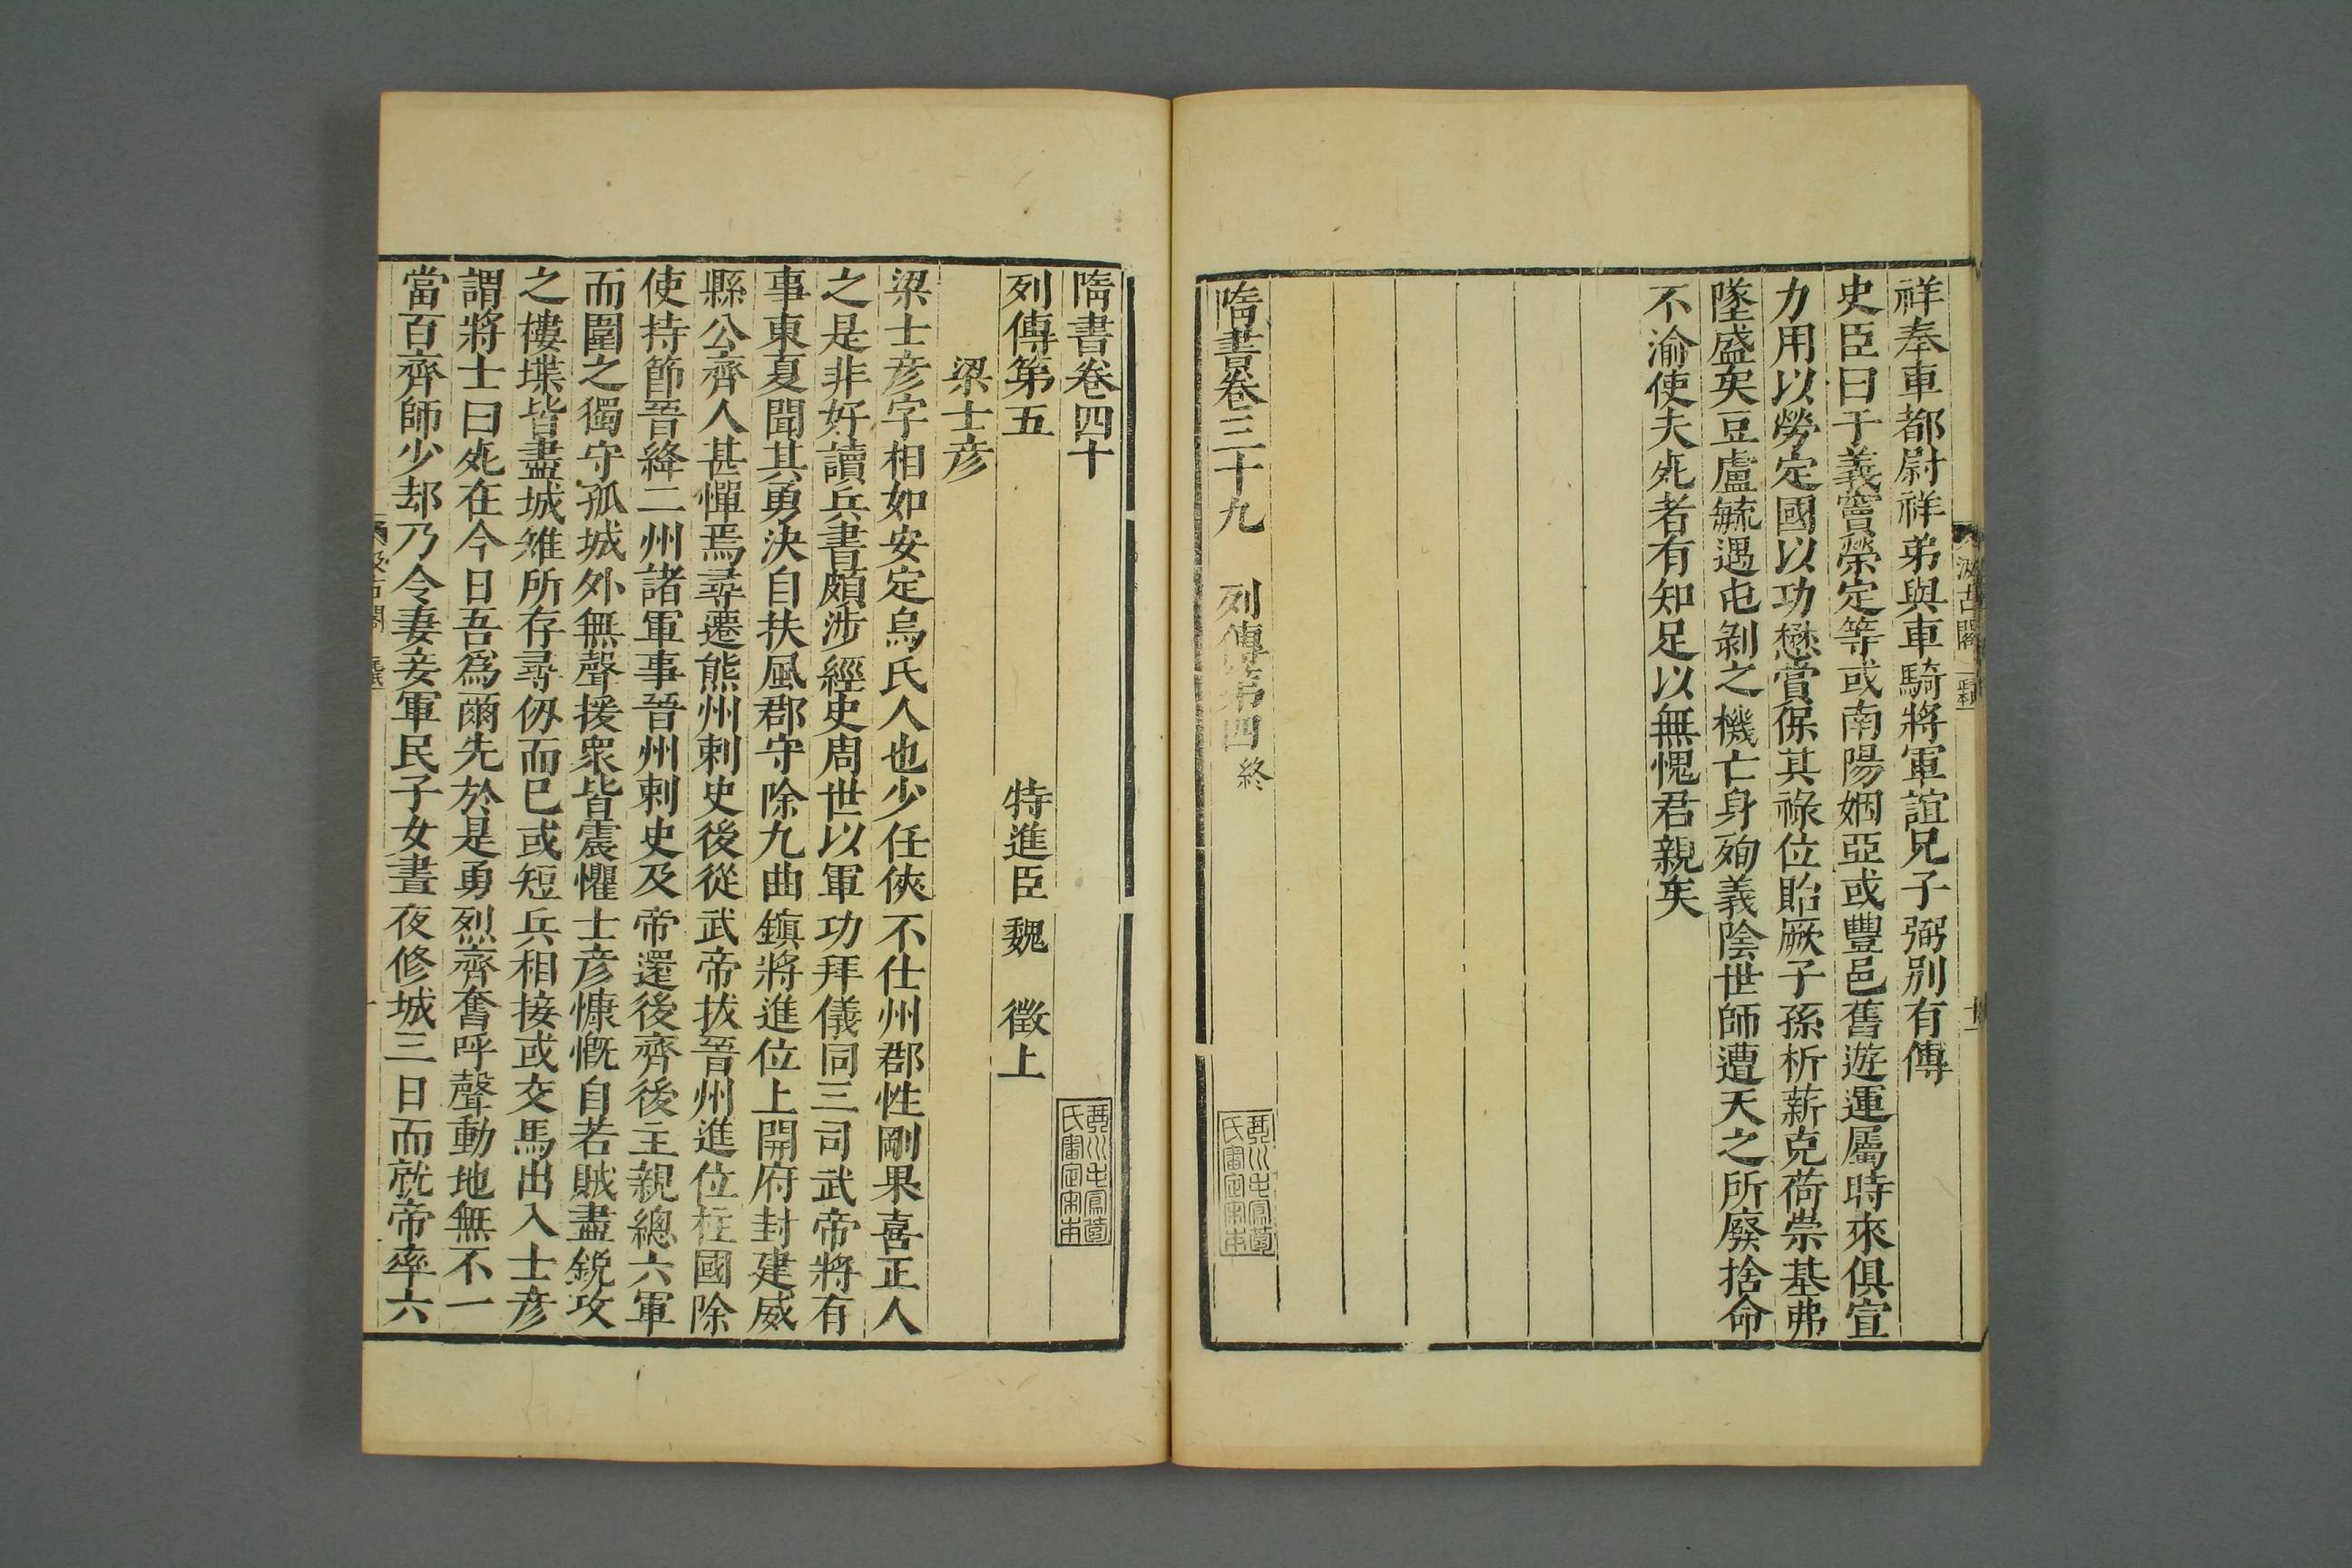 祥奉車都尉祥弟與車騎將軍誼兄子弼別有傳
史臣曰于義竇榮定等或南陽姻亞或豐邑舊遊運屬時來俱宣
力用以勞定國以功懋賞保其祿位貽厥子孫析薪克荷崇基弗
墜盛矣豆盧毓遇屯剝之機亡身殉義陰世師遭天之所廢捨命
不渝使夫死者有知足以無愧君親矣
隋書卷三十九 列傳第四終
琴川毛鳳苞
氏審定宋本
隋書卷四十
琴川毛鳳苞
氏審定宋本
列傳第五 特進臣魏 徵上
梁士彥
梁士彥字相如安定烏氏人也少任俠不仕州郡性剛果喜正人
之是非好讀兵書頗涉經史周世以軍功拜儀同三司武帝將有
事東夏聞其勇決自扶風郡守除九曲鎮將進位上開府封建威
縣公齊人甚憚焉尋遷熊州刺史後從武帝拔晉州進位柱國除
使持節晉絳二州諸軍事晉州刺史及帝還後齊後主親總六軍
而圍之獨守孤城外無聲援眾皆震懼士彥慷慨自若賊盡銳攻
之樓堞皆盡城雉所存尋仞而已或短兵相接或交馬出入士彥
謂將士曰死在今日吾為爾先於是勇烈齊奮呼聲動地無不一
當百齊師少却乃令妻妾軍民子女晝夜修城三日而就帝率六
汲古閣